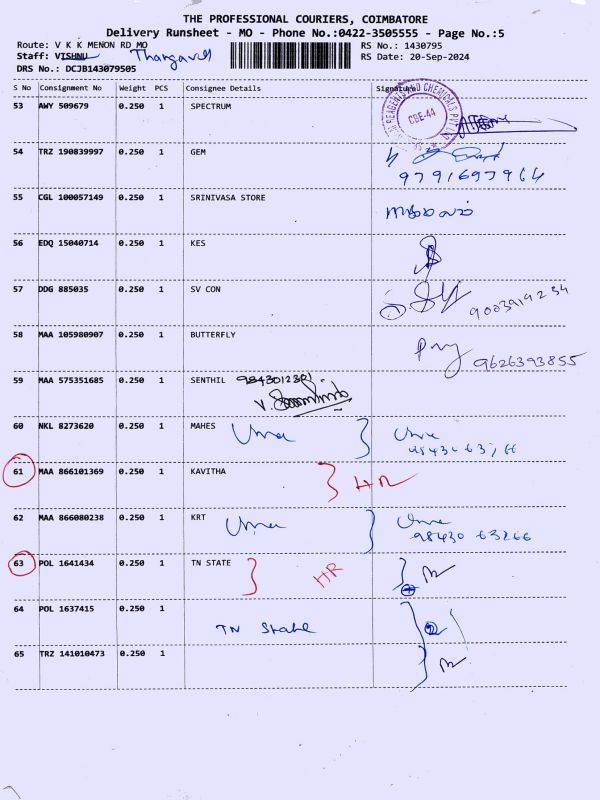 THE PROFESSIONAL COURIERS, COIMBATORE
Delivery Runsheet - MO - Phone No.:0422-3505555 - Page No.:5
Route: V K K MENON RD_MO RS No.: 1430795
Staff: VISHNU Thangavel RS Date: 20-Sep-2024
DRS No.: DCJB143079505
S No Consignment No Weight PCS Consignee Details Signature
53 AWY 509679 0.250 1 SPECTRUM
CBE-44
54 TRZ 190839997 0.250 1 GEM
9791697964
55 CGL 100057149 0.250 1 SRINIVASA STORE
56 EDQ 15040714 0.250 1 KES
57 DDG 885035 0.250 1 SV CON
9003919234
58 MAA 105980907 0.250 1 BUTTERFLY
9626393855
59 MAA 575351685 0.250 1 SENTHIL
60 NKL 8273620 0.250 1 MAHES Uma Uma
61 MAA 866101369 0.250 1 KAVITHA HR
62 MAA 866080238 0.250 1 KRT Uma Uma
98430 63266
63 POL 1641434 0.250 1 TN STATE HR
64 POL 1637415 0.250 1
TN State
65 TRZ 141010473 0.250 1